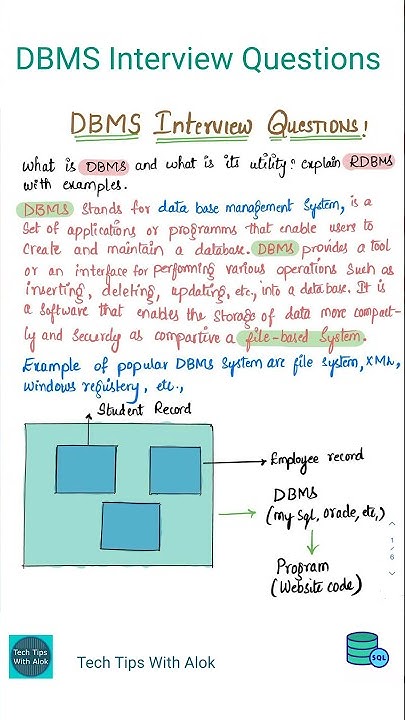 DBMS Interview Questions
DBMS Interview Questions!
What is DBMS and what is its utility? explain RDBMS
with examples.
DBMS stands for data base management System, is a
Set of applications or programms that enable users to
Create and maintain a database. DBMS provides a tool
or an interface for performing various operations such as
inserting, deleting, updating, etc, into a data base. It is
a software that enables the storage of data more compact-
ly and securely as compartive a file-based System.
Example of popular DBMS System are file system, XML,
windows registery, etc.,
Student Record
Employee record
DBMS
(my Sql, oracle, etc,)
Program
(Website code)
1/6
Tech Tips
With Alok
Tech Tips With Alok
SQL